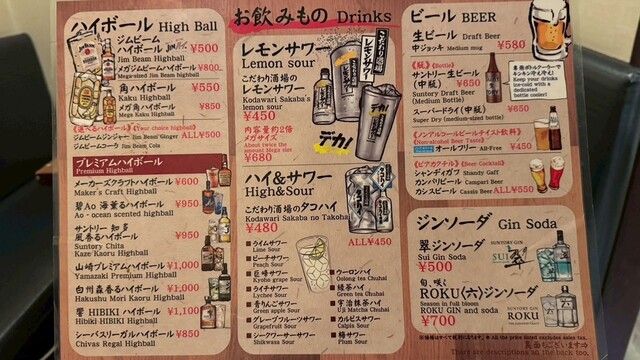 お飲みもの Drinks
ハイボール High Ball
ジムビーム
ハイボール ¥500
Jim Beam Highball
メガジムビームハイボール ¥800
Mega-sized Jim Beam highball
角ハイボール ¥550
Kaku Highball
メガ角ハイボール ¥850
Mega Kaku Highball
《選べるハイボール》(Your choice highball)
ジムビームジンジャー Jim Beam Ginger ALL¥500
ジムビームコーラ Jim Beam Cola
プレミアムハイボール
Premium Highball
メーカーズクラフトハイボール ¥600
Maker's Craft Highball
碧Ao 海薫るハイボール ¥950
Ao・ocean scented highball
サントリー 知多
風香るハイボール ¥950
Suntory Chita
Kaze Kaoru Highball
山崎プレミアムハイボール ¥1,000
Yamazaki Premium Highball
白州森香るハイボール ¥1,000
Hakushu Mori Kaoru Highball
響 HIBIKI ハイボール ¥1,100
Hibiki HIBIKI Highball
シーバスリーガルハイボール ¥850
Chivas Regal Highball
レモンサワー
Lemon sour
こだわり酒場の
レモンサワー
Kodawari Sakaba's
lemon sour
¥450
内容量約2倍
メガサイズ
About twice the
amount Mega size
¥680
こだわり酒場
レモンサワー
デカ!
デカ!
ハイ&サワー
High&Sour
こだわり酒場のタコハイ
Kodawari Sakaba no Takohai
¥480
ALL¥450
■ライムサワー
Lime Sour
■ピーチサワー
Peach Sour
■巨峰サワー
Kyoho grape Sour
■ライチサワー
Lychee Sour
■青りんごサワー
Green apple Sour
■グレープフルーツサワー
Grapefruit Sour
■シークワーサーサワー
Shikwasa Sour
■ウーロンハイ
Oolong tea Chuhai
■緑茶ハイ
Green tea Chuhai
■宇治抹茶ハイ
Uji Matcha Chuhai
■カルピスサワー
Calpis Sour
■梅サワー
Plum Sour
ビール BEER
生ビール Draft Beer
中ジョッキ Medium mug ¥580
《瓶》(Bottle)
サントリー生ビール
(中瓶) ¥650
Suntory Draft Beer
(Medium Bottle)
専用ボトルクーラーで
キンキン冷え冷え!
Keep your drinks
ice-cold with a
dedicated
bottle cooler!
スーパードライ(中瓶) ¥650
Super Dry (medium-sized bottle)
《ノンアルコールビールテイスト飲料》
(Nonalcohol Beer Taste)
オールフリー All-Free ¥450
《ビアカクテル》(Beer Cocktail)
シャンディガフ Shandy Gaff
カンパリビール Campari Beer
カシスビール Cassis Beer ALL¥550
ジンソーダ Gin Soda
翠ジンソーダ
Sui Gin Soda
¥500
SUNTORY GIN
SUI
翠
旬、咲く
ROKU〈六〉ジンソーダ
Season in full bloom
ROKU GIN and soda
¥700
SUNTORY GIN
ROKU
※価格はすべて税別でございます。 ※All the price listed excludes sales tax.
裏面もございます⇒
There are descriptions at the back too.